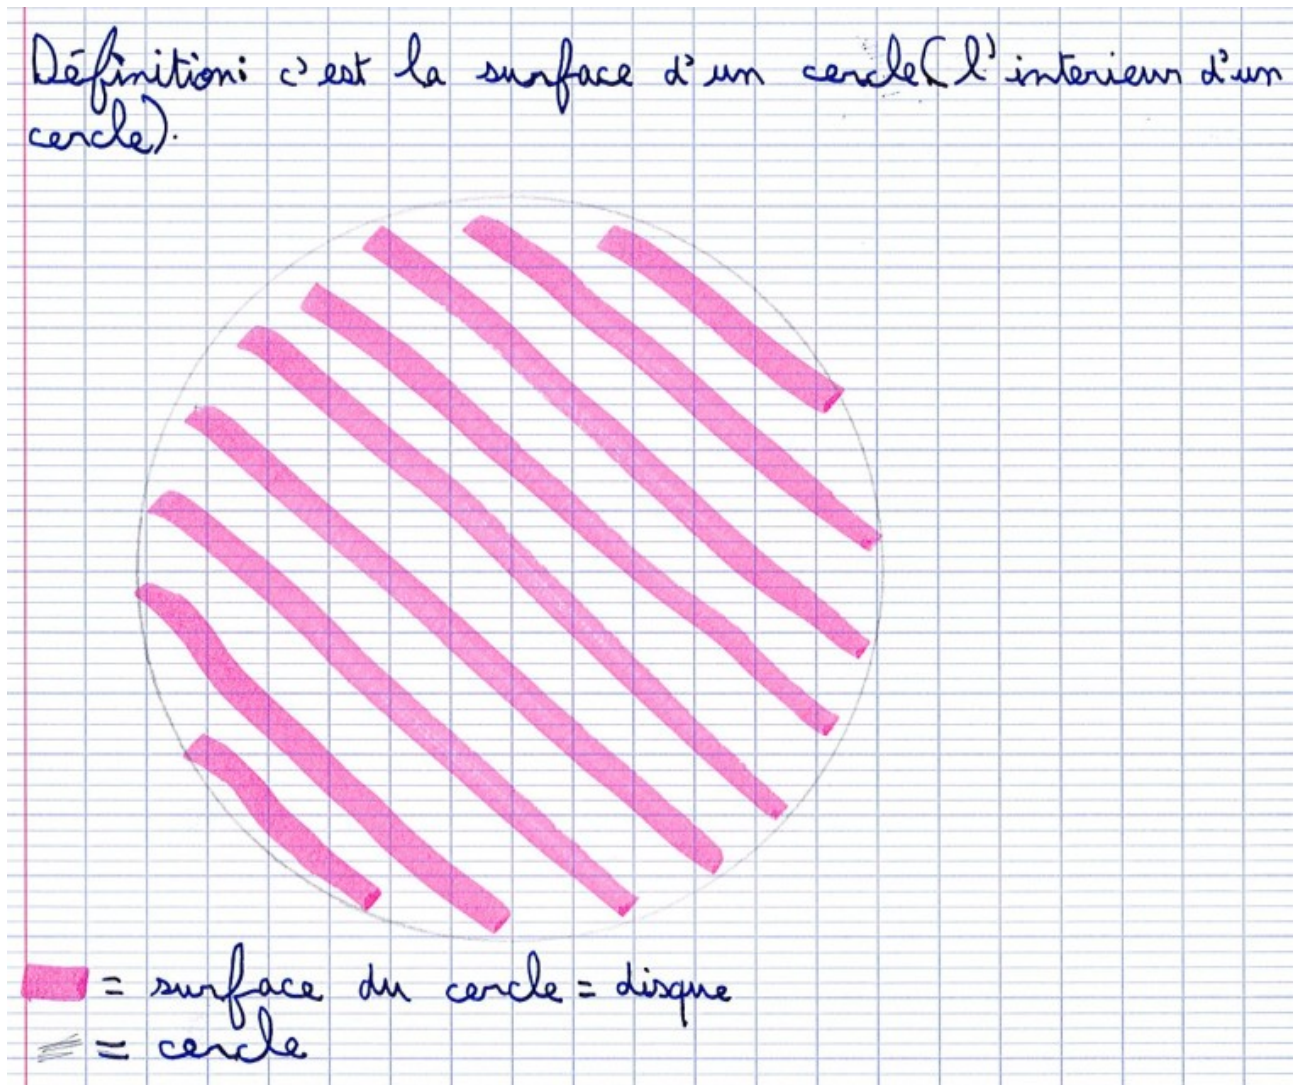 Définition: c'est la surface d'un cercle (l'interieur d'un
cercle).
= surface du cercle = disque
= cercle